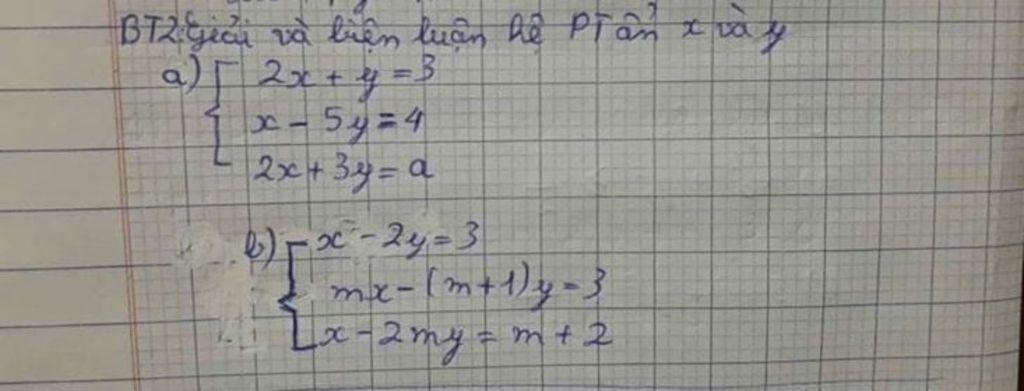 BT2: Giải và biện luận hệ PT ẩn x và y
a) { 2x + y = 3
x - 5y = 4
2x + 3y = a
b) { x - 2y = 3
mx - (m+1)y = 3
x - 2my = m + 2